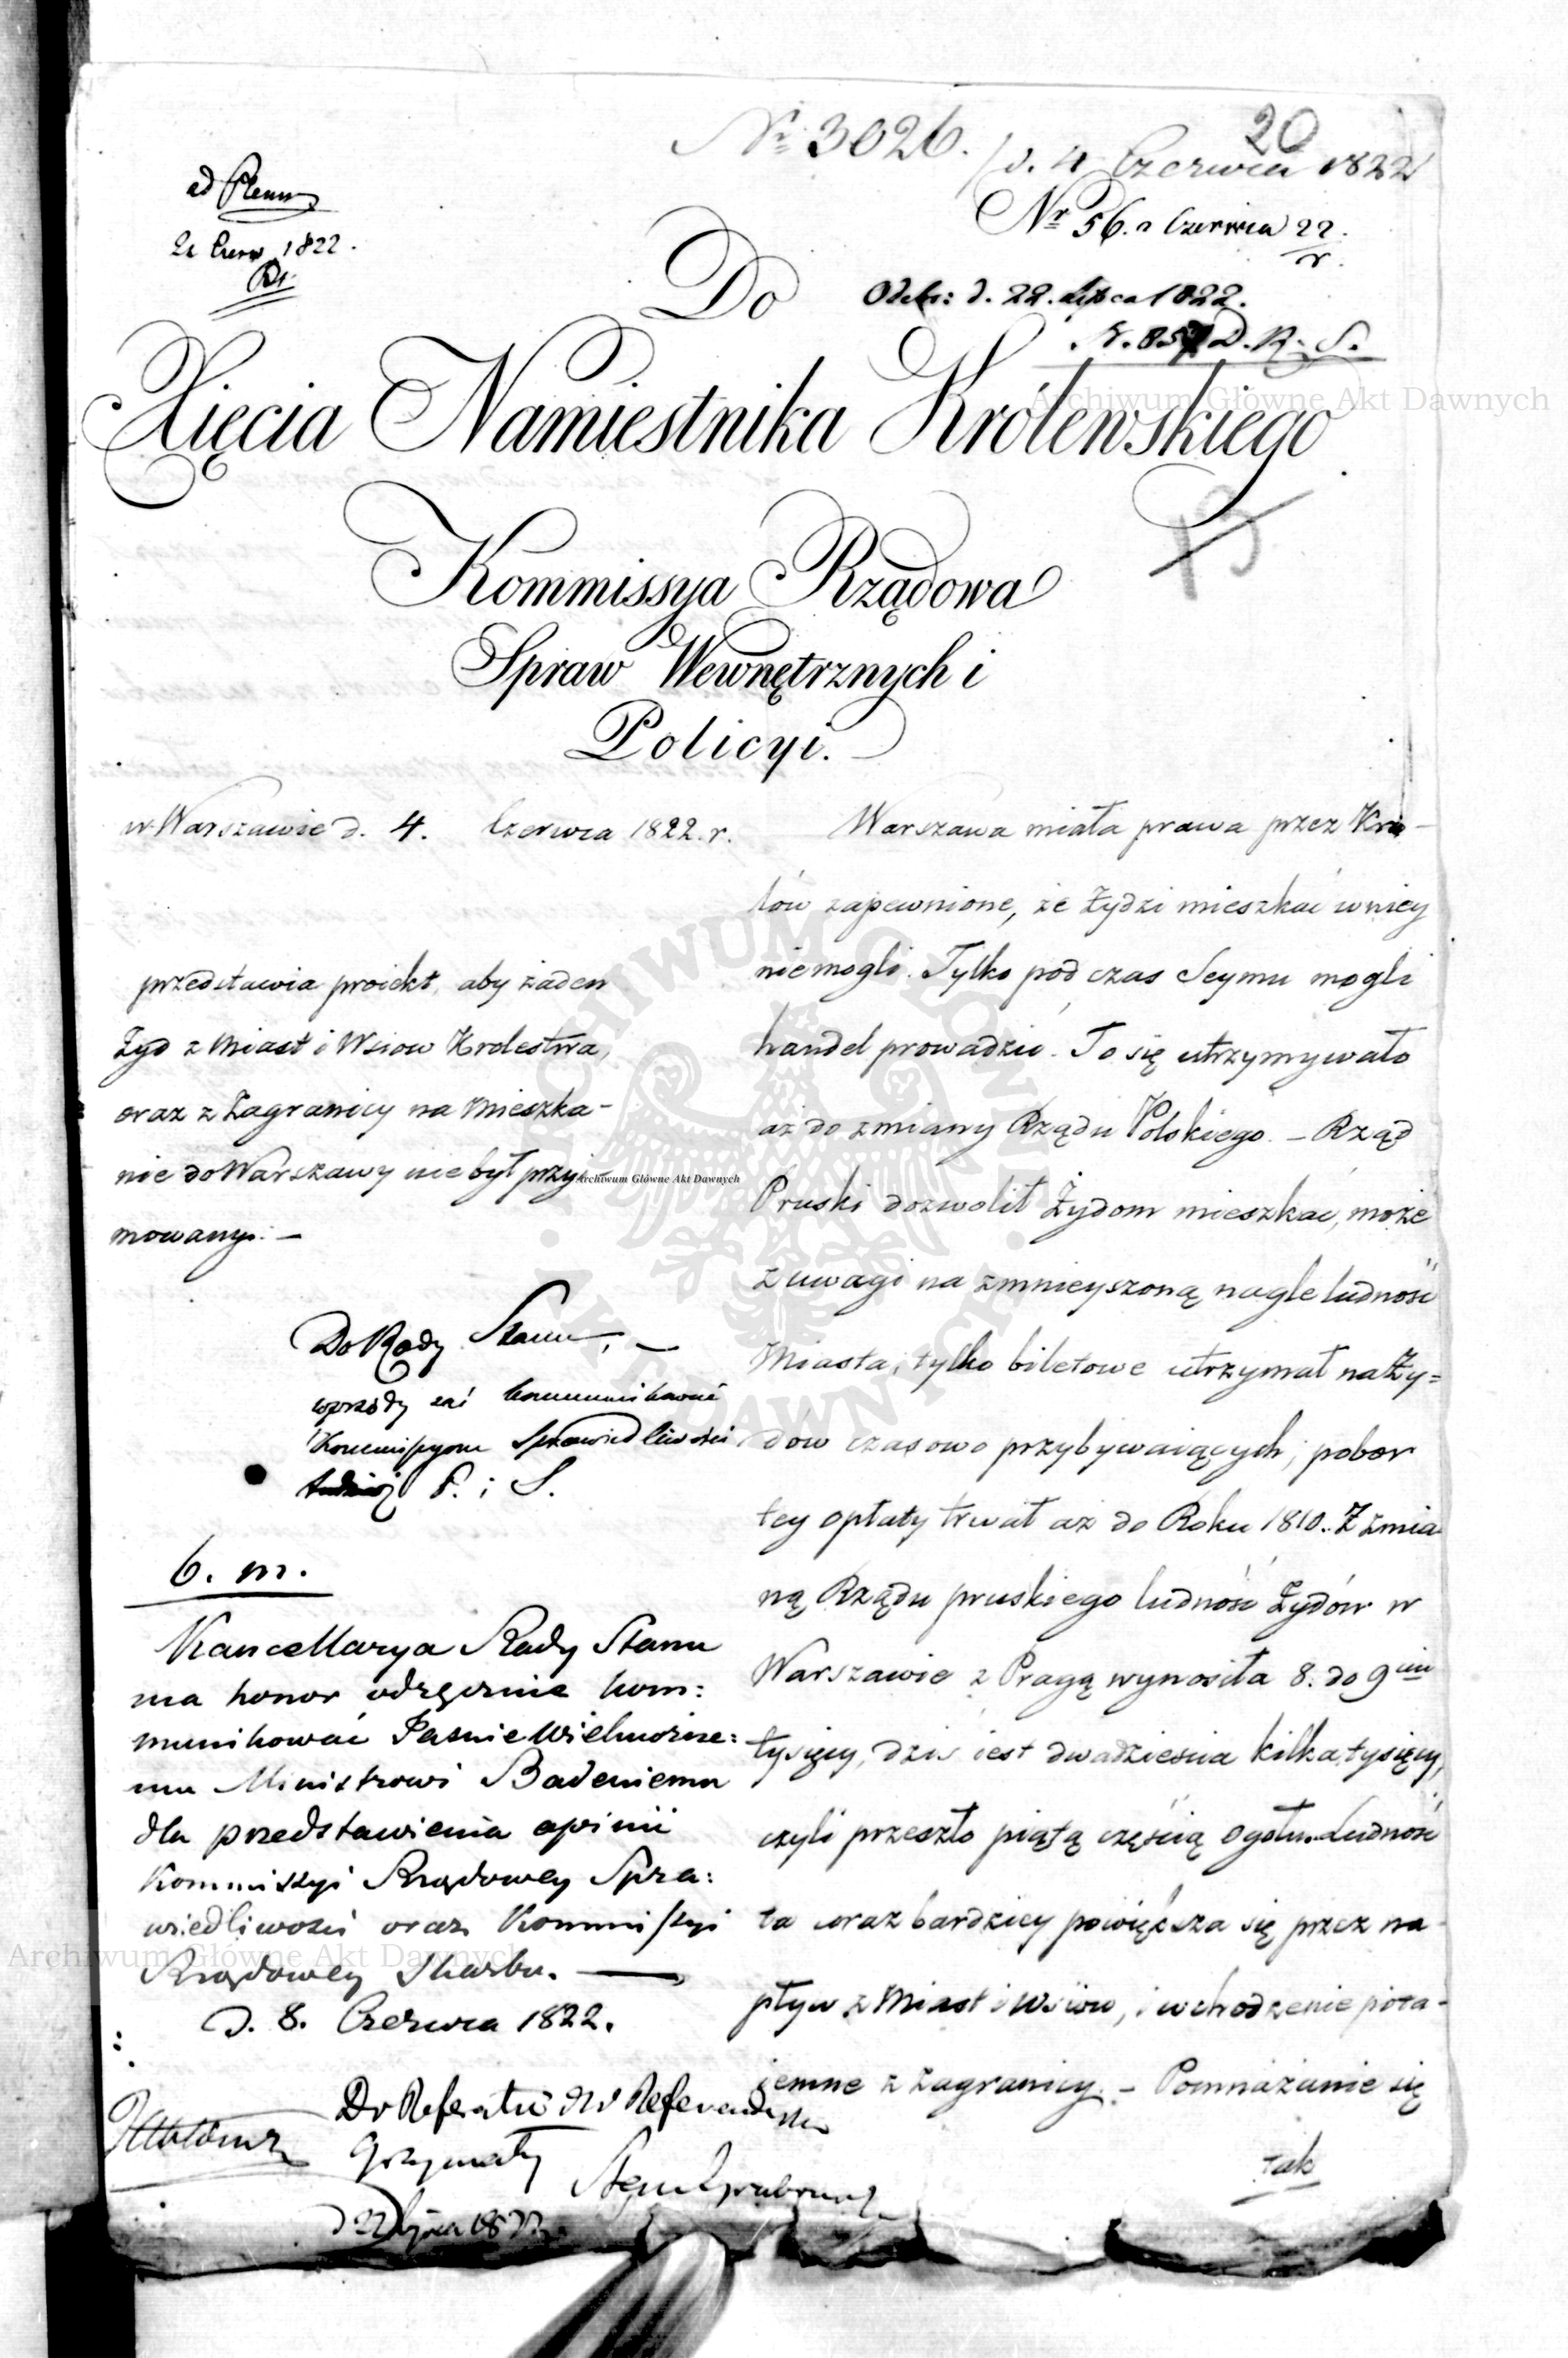 Nr 3026.
20
/d. 4 Czerwca 1822/
Nr 56. a Czerwca 22.
r.
ad Plenum
21 Czerw. 1822.
Do
Odeb: d. 22. Lipca 1822.
D. R. S.
Xięcia Namiestnika Królewskiego
Kommissya Rządowa
Spraw Wewnętrznych i
Policyi.
w Warszawie d. 4. Czerwca 1822. r.
przedstawia proiekt, aby żaden
Żyd z Miast i Wsiow Krolestwa,
oraz z Zagranicy na Mieszka-
nie do Warszawy nie był przyi-
mowany. —
Do Rady Stanu, —
wprzódy zaś kommunikować
Kommissyom Sprawiedliwości
P. i S.
6. m.
Kancellarya Rady Stanu
ma honor odręcznie kom:
munikować Jaśnie Wielmożne:
mu Ministrowi Badeniemu
dla przedstawienia opinii
Kommissyi Rządowey Spra:
wiedliwości oraz Kommissyi
Rządowey Skarbu. —
D. 8. Czerwca 1822.
Do Referatu JW Referenda
Grzymały
d 22 Lipca 1822
Warszawa miała prawa przez Kró-
lów zapewnione, że Żydzi mieszkać w niey
niemogli. Tylko pod czas Seymu mogli
handel prowadzić. To się utrzymywało
aż do zmiany Rządu Polskiego. – Rząd
Pruski dozwolił Żydom mieszkać, może
z uwagi na zmnieyszoną nagle ludność
Miasta; tylko biletowe utrzymał na Ży=
dów czasowo przybywaiących; pobor
tey opłaty trwał aż do Roku 1810. Z zmia
ną Rządu pruskiego ludność Żydów w
Warszawie z Pragą wynosiła 8. do 9ciu
tysięcy, dziś iest dwadzieścia kilka tysięcy,
czyli przeszło piątą częścią ogołu. Ludność
ta coraz bardziey powiększa się przez na-
pływ z Miast i Wsiow, i wchodzenie pota-
iemne z zagranicy. – Pomnażanie się
tak
Archiwum Główne Akt Dawnych
Archiwum Główne Akt Dawnych
Archiwum Główne Akt Dawnych
ARCHIWUM GŁÓWNE · AKT DAWNYCH ·